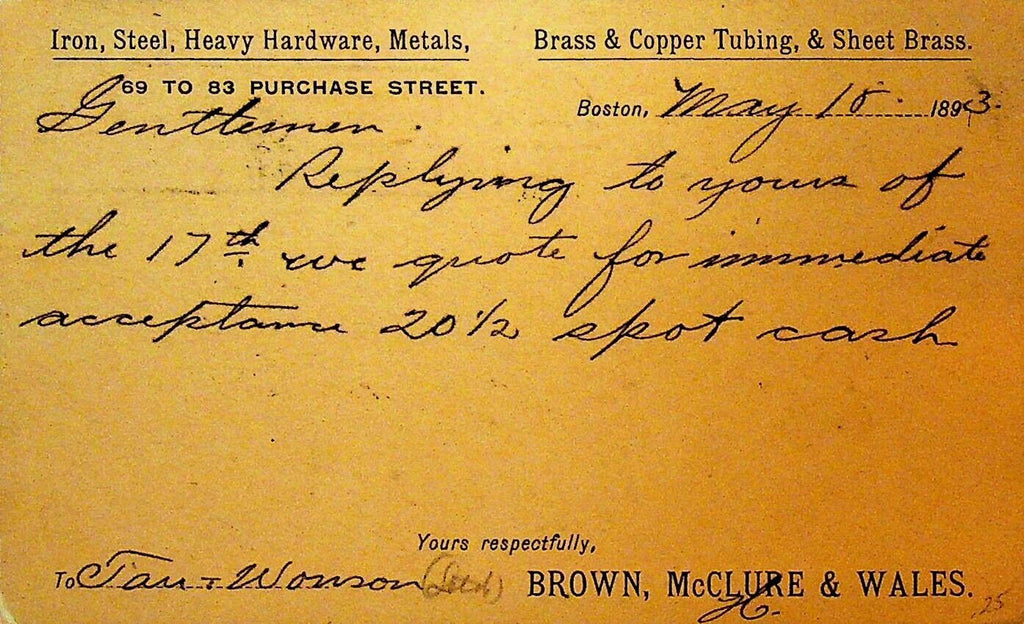 Iron, Steel, Heavy Hardware, Metals,
Brass & Copper Tubing, & Sheet Brass.
69 TO 83 PURCHASE STREET.
Boston, May 18. 1893.
Gentlemen.
Replying to yours of
the 17th. we quote for immediate
acceptance 20 1/2 spot cash
Yours respectfully,
To Tarr & Wonson
BROWN, McCLURE & WALES.
H.
25